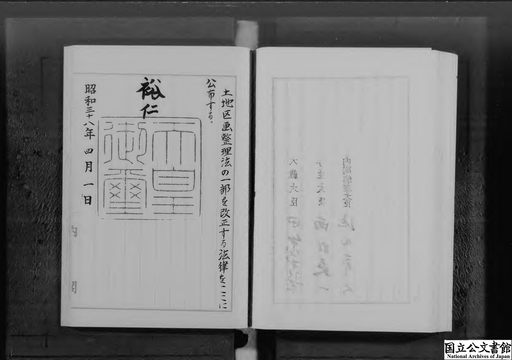 土地区画整理法の一部を改正する法律をここに
公布する。
裕仁
天皇
御璽
昭和三十八年四月一日
内閣
大蔵大臣
国立公文書館
National Archives of Japan